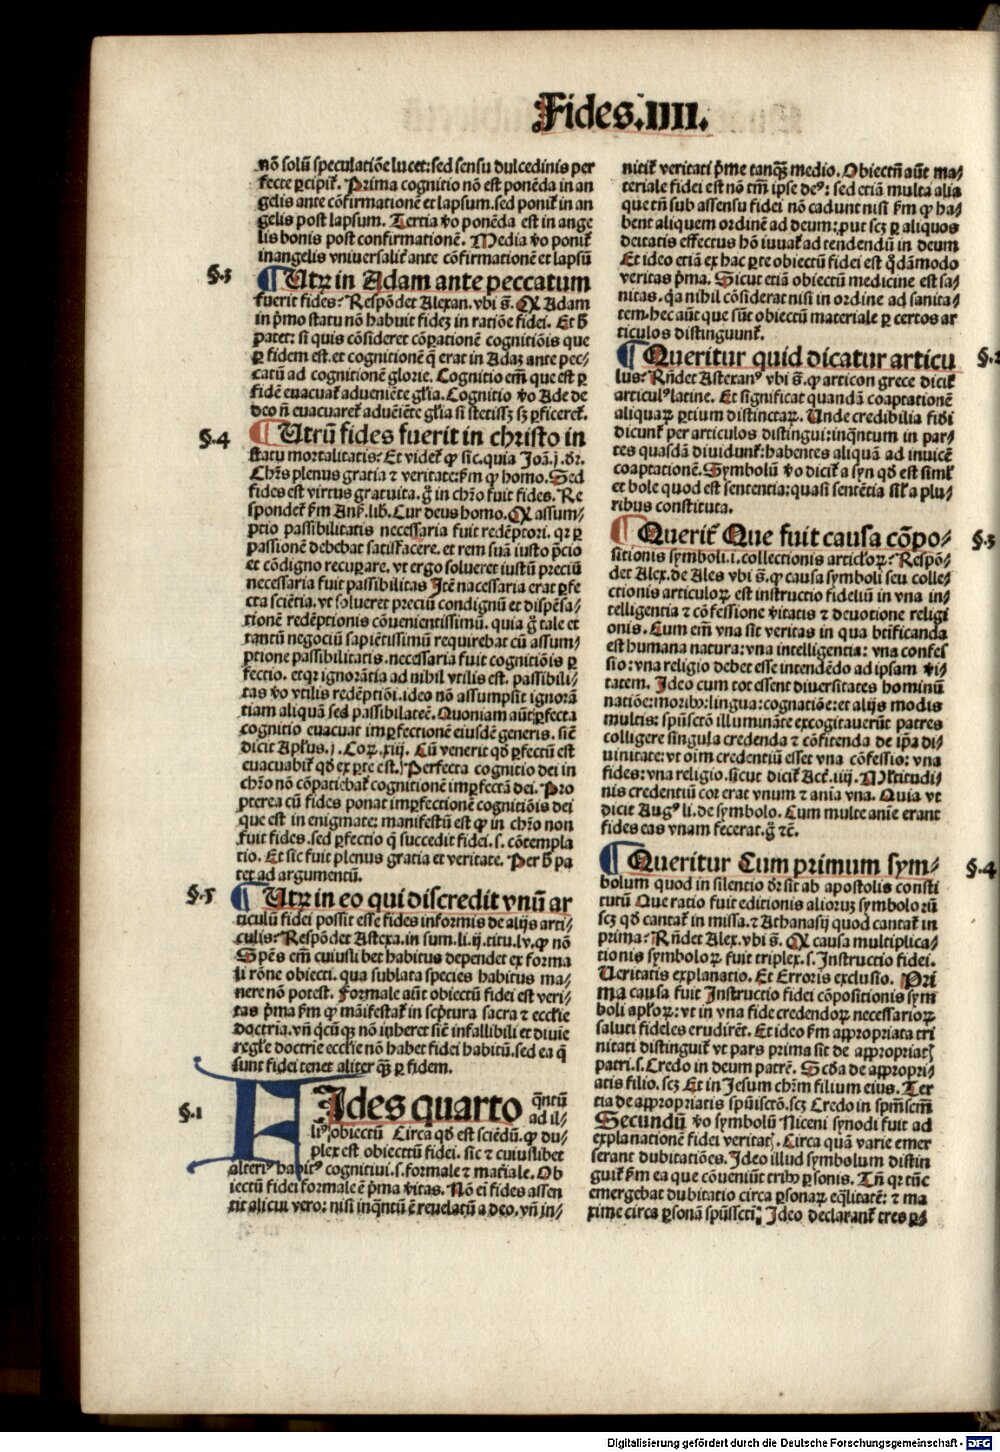 Fides.IIII.
nō solū speculatiōe lucet:sed sensu dulcedinis per
fecte ꝑcipit̄. Prima cognitio nō est ponēda in an
gelis ante cōfirmationē et lapsum.sed ponit̄ in an
gelis post lapsum. Tertia ṽo ponēda est in ange
lis bonis post confirmationē. Media ṽo ponit̄
inangelis vniuersalit̄ ante cōfirmationē et lapsū
§.3
¶ Utꝝ in Adam ante peccatum
fuerit fides? Respōdet Alexan.vbi s̄. Ꝙ Adam
in p̄mo statu nō habuit fidez in ratiōe fidei. Et h̄
patet: si quis cōsideret cōꝑationē cognitiōis que
ꝑ fidem est.et cognitionē q̄ erat in Adaz ante pec/
catū ad cognitionē glorie. Cognitio em̄ que est ꝑ
fidē euacuat̄ adueniēte gl̄ia. Cognitio ṽo Ade de
deo n̄ euacuaret̄ aduēiēte gl̄ia si stetissz sz ꝑficeret̄.
§.4
¶ Utrū fides fuerit in christo in
statu mortalitatis? Et videt̄ ꝙ sic.quia Joā.j.dr̄.
Chr̄s plenus gratia ⁊ veritate:fm̄ ꝙ homo. Sed
fides est virtus gratuita.g̊ in chr̄o fuit fides. Re
spondet̄ fm̄ Ans̄.lib. Cur deus homo. Ꝙ assum/
ptio passibilitatis necessaria fuit redēptori. qꝛ ꝑ
passionē debebat satisfacere. et rem suā iusto p̄cio
et cōdigno recuꝑare. vt ergo solueret iustū preciū
necessaria fuit passibilitas Jtē nacessaria erat ꝑfe
cta sciētia. vt solueret preciū condignū et dispēsa/
tionē redēptionis cōuenientissimū. quia g̊ tale et
tantū negociū sapiētissimū requirebat cū assum/
ptione passibilitatis.necessaria fuit cognitiōis ꝑ
fectio. etqꝛ ignorātia ad nihil vtilis est. passibili/
tas ṽo vtilis redēptiōi.ideo nō assumpsit ignorā
tiam aliquā sed passibilateē. Quoniam aūt ꝑfecta
cognitio euacuat imꝑfectionē eiusdē generis. sic̄
dicit Apl̄us.j.Coꝝ.xiij. Cū venerit qd̄ ꝑfectū est
euacuabit̄ qd̄ ex ꝑte est. Perfecta cognitio dei in
chr̄o nō cōpatiebat̄ cognitionē imꝑfectā dei. Pro
pterea cū fides ponat imꝑfectionē cognitiōis dei
que est in enigmate: manifestū est ꝙ in chr̄o non
fuit fides. sed ꝑfectio q̄ succedit fidei.s.cōtempla
tio. Et sic fuit plenus gratia et veritate. Per h̄ pa
tet ad argumentū.
§.5
¶ Utꝝ in eo qui discredit vnū ar
ticulū fidei possit esse fides informis de alijs arti/
culis? Respōdet Astexa.in sum.li.ij.titu.lv.ꝙ nō
Spēs em̄ cuiusli bet habitus dependet ex forma
li rōne obiecti. qua sublata species habitus ma/
nere nō potest. Formale aūt obiectū fidei est veri/
tas p̄ma fm̄ ꝙ māifestat̄ in scp̄tura sacra ⁊ eccl̄ie
doctria.vn̄ q̄cūqꝫ nō inheret sic̄ infallibili et diuie
regl̄e doctrie eccl̄ie nō habet fidei habitū.sed ea q̄
sunt fidei tenet aliter q̄ꝫ ꝑ fidem.
§.1
FJdes quarto q̄ntū
ad il/
liꝰ obiectū Circa qd̄ est sciēdū.ꝙ du/
plex est obiectū fidei. sic̄ ⁊ cuiuslibet
alteriꝰ habitꝰ cognitiui.s.formale ⁊ mat̄iale. Ob
iectū fidei formale ē p̄ma ṽitas. Nō ei fides assen
tit alicui vero: nisi inq̄ntū ē reuelatū a deo. vn̄ in/
nitit̄ veritati p̄me tanq̄ꝫ medio. Obiectū aūt ma/
teriale fidei est nō tm̄ ipse deꝰ: sed etiā multa alia
que tn̄ sub assensu fidei nō cadunt nisi fm̄ ꝙ ha/
bent aliquem ordinē ad deum:put scz ꝑ aliquos
deitatis effectus hō iuuat̄ ad tendendū in deum
Et ideo etiā ex hac ꝑte obiectū fidei est q̊dāmodo
veritas p̄ma. Sicut etiā obiectū medicine est sa/
nitas. qa nihil cōsiderat nisi in ordine ad sanita/
tem.hec aūt que sūt obiectū materiale ꝑ certos ar
ticulos distinguunt̄.
§.2
¶ Queritur quid dicatur articu
lus? Rn̄det Astexanꝰ vbi s̄.ꝙ articon grece dicit̄
articulꝰ latine. Et significat quandā coaptationē
aliquaꝝ ꝑtium distinctaꝝ. Unde credibilia fidei
dicunt̄ per articulos distingui:inq̄ntum in par/
tes quasdā diuidunt̄:habentes aliquā ad inuicē
coaptationē. Symbolū ṽo dicit̄ a syn qd̄ est simł
et bole quod est sententia:quasi sentētia sił a plu/
ribus constituta.
§.3
¶ Querit̄ Que fuit causa cōpo/
sitionis symboli.i.collectionis articłoꝝ? Respō/
det Alex.de Ales vbi s̄.ꝙ causa symboli seu colle/
ctionis articuloꝝ est instructio fideliū in vna in/
telligentia ⁊ cōfessione ṽitatis ⁊ deuotione religi
onis. Cum em̄ vna sit veritas in qua btificanda
est humana natura: vna intelligentia: vna confes
sio: vna religio debet esse intendēdo ad ipsam ṽi/
tatem. Jdeo cum tot essent diuersitates hominū
natiōe:moribꝫ:lingua:cognatiōe:et alijs modis
multis: spūsctō illumināte excogitauerūt patres
colligere singula credenda ⁊ cōfitenda de ip̄a di/
uinitate: vt oim̄ credentiū esset vna cōfessio: vna
fides: vna religio. sicut dicit̄ Act̄.iiij. Młtitudi/
nis credentiū cor erat vnum ⁊ ania vna. Quia vt
dicit Augꝰ li.de symbolo. Cum multe anie erant
fides eas vnam fecerat.g̊ ⁊c̄.
§.4
¶ Queritur Cum primum sym/
bolum quod in silentio dr̄ sit ab apostolis consti
tutū Que ratio fuit editionis alioruz symbolo rū
scz qd̄ cantat̄ in missa.⁊ Athanasij quod cantat̄ in
prima? Rn̄det Alex.vbi s̄. Ꝙ causa multiplica/
tionis symboloꝝ fuit triplex.s.Instructio fidei.
Ueritatis explanatio. Et Erroris exclusio. Pri
ma causa fuit Jnstructio fidei cōpositionis sym
boli apłoꝝ: vt in vna fide credendoꝝ necessarioꝝ
saluti fideles erudirēt. Et ideo fm̄ appropriata tri
nitati distinguit̄ vt pars prima sit de appropriatꝭ
patri.s.Credo in deum patrē. Scd̄a de appropri/
atis filio.scz Et in Jesum chr̄m filium eius. Ter
tia de appropriatis spūisctō.scz Credo in spm̄scm̄
Secundū ṽo symbolū Niceni synodi fuit ad
explanationē fidei veritatꝭ. Circa quā varie emer
serant dubitatiōes. Jdeo illud symbolum distin
guit̄ fm̄ ea que cōueniūt tribꝫ ꝑsonis. Tn̄ qꝛ tūc
emergebat dubitatio circa ꝑsonaꝝ eq̄litatē: ⁊ ma
xime circa ꝑsonā spūsscti; Jdeo declarant̄ tres ꝑ/
Digitalisierung gefördert durch die Deutsche Forschungsgemeinschaft - DFG